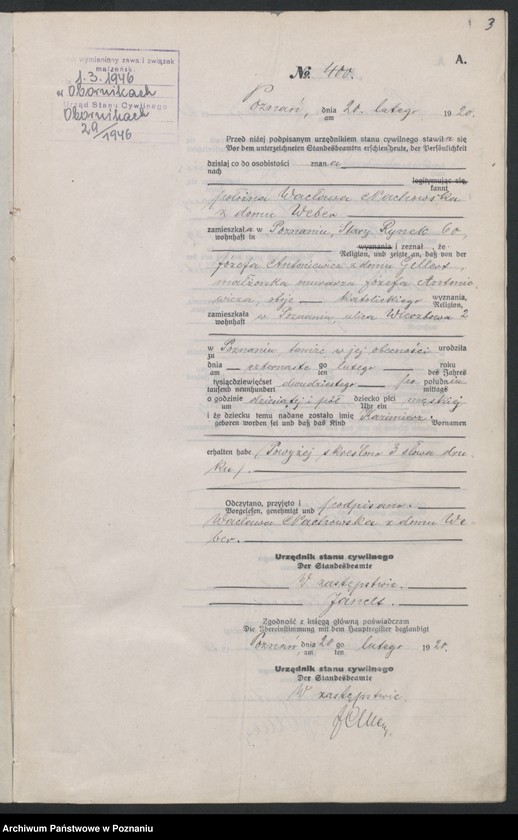 3
A.
wymieniony zawarł związek
małżeński
1.3.1946
w Obornikach
Urząd Stanu Cywilnego
Obornikach
29/1946
№ 400.
Poznań, dnia 20. lutego 1920.
am
Przed niżej podpisanym urzędnikiem stanu cywilnego stawiła się
Vor dem unterzeichneten Standesbeamten erschien heute, der Persönlichkeit
dzisiaj co do osobistości znana
nach
legitymując się,
kannt
położna Wacława Nachowska
z domu Weber
zamieszkała w Poznaniu, Stary Rynek 60,
wohnhaft in
wyznania i zeznał, że
Religion, und zeigte an, daß von der
Józefa Antoniewicz z domu Gellert,
małżonka murarza Józefa Antonie-
wicza, oboje katolickiego wyznania,
Religion,
zamieszkała w Poznaniu, ulica 2
wohnhaft
w Poznaniu, tamże w jej obecności urodziła
zu
dnia czternastego lutego roku
am ten des Jahres
tysiącdziewięćset dwudziestego po południu
tausend neunhundert mittags
o godzinie dziesiątej i pół dziecko płci męskiej
um Uhr ein
i że dziecku temu nadane zostało imię Kazimierz.
geboren worden sei und daß das Kind Vornamen
erhalten habe (Powyżej skreślono 3 słowa dru-
ku).
Odczytano, przyjęto i podpisano.
Vorgelesen, genehmigt und
Wacława Nachowska z domu We-
ber.
Urzędnik stanu cywilnego
Der Standesbeamte
W zastępstwie.
Zgodność z księgą główną poświadczam
Die Übereinstimmung mit dem Hauptregister beglaubigt
Poznań, dnia 20 go lutego 1920.
am ten
Urzędnik stanu cywilnego
Der Standesbeamte
W zastępstwie.
Archiwum Państwowe w Poznaniu